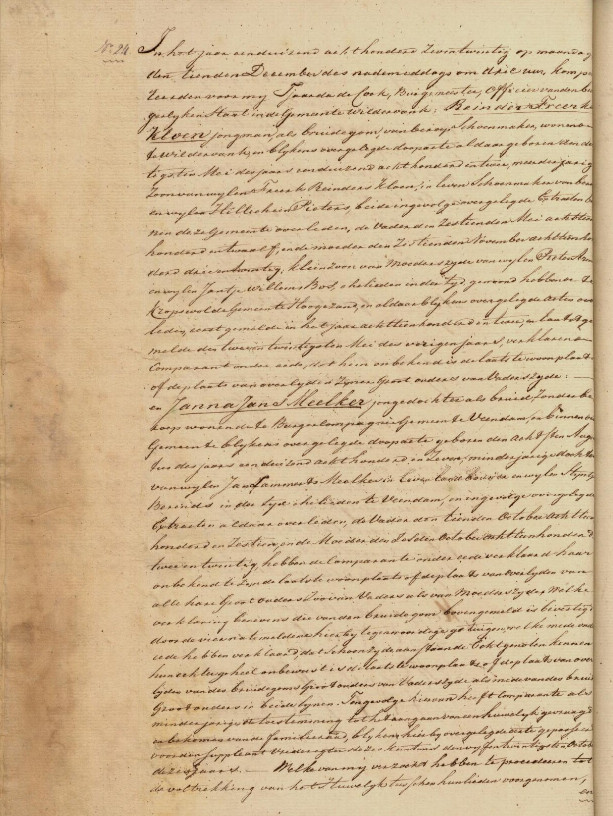 No. 24
In het jaar eenduizend acht honderd zevintwintig op maandag
den tienden December des nademiddags om drie uur, komp
teerden voor mij Tjaarda de Cock, Burgemeester, Officier van den bur
gerlijken Staat in de Gemeente Wildervank: Reinder Freerks
Kloen, jongman, als bruidegom, van beroep Schoenmaker, wonen
te Wildervank, en blykens overgelegde doopacte aldaar geboren den
tigsten Mei des jaars eenduizend achthonderd en twee, meerderjarig
Zoon van wylen Freerk Reinders Kloen, in leven Schoenmaker van beroe
en wylen Hillechien Pieters, beide ingevolge overgelegde Extracten bin
nen deze Gemeente overleden, de Vader den Zestienden Mei achttien
honderd en twaalf, en de moeder den Zestienden November achttienhon
derd drieentwintig, kleinzoon van Moederszyde van wylen Pieter
en wylen Jantje Willems Bos, echtelieden in der tyd, gewoond hebbende te
Kropswolde Gemeente Hoogezand, en aldaar blykens overgelegde acten over
leden, eerstgemelde in het jaar achttienhonderd en twee, en laatstge
melde den tweeentwintigsten Mei des vorigen jaars, verklarende
Comparant onder eede, dat hem onbekend is de laatste woonplaats
of de plaats van overlyden Zyner Groot ouders van Vaderszyde: —
en Janna Jans Meelker, jongedochter als bruid, zonder be
roep wonende te Borgercompagnie Gemeente Veendam, en binnen die
Gemeente blykens overgelegde doopacte geboren den achtsten Augus
tus des jaars eenduizend achthonderd en Zeven, minderjarige dochter
van wylen Jan Lammerts Meelker in leven landbouwer en wylen Stijntje
Berends in der tyd echtelieden te Veendam, en ingevolge overgelegde
Extracten aldaar overleden, de Vader den tienden October achttien
honderd en Zestien, en de Moeder den October achttienhonderd
tweeentwintig, hebbende Comparante onder eede verklaard haar
onbekend te Zyn de laatste woonplaats of de plaats van overlyden van
alle hare Groot ouders Zoo van Vaders als van Moederszyde, Welke
verklaring benevens die van den bruidegom bovengemeld is bevestigd
door de vier na te meldene hierby tegenwoordige getuigen, welke mede onder
eede hebben verklaard, dat schoon zy de aanstaande Echtgenoten kennen
hun echter geheel onbewust is de laatste woonplaats of de plaats van over
lyden van des bruidegoms Grootouders van Vaderszyde als mede van des bruids
Grootouders in beide lynen. Ten gevolge hiervan heeft Comparante als
minderjarige de toestemming tot het aangaan van een huwelyk gevraagd
en bekomen van de familieraad, blykens hierby overgelegde acte gepasseerd
voor den suppleant Vrederegter dezes kantons den vyfentwintigsten October
dezes jaars. — Welke van my verzocht hebben te procederen tot
de voltrekking van het Huwelyk tusschen hun lieden voorgenomen,
en